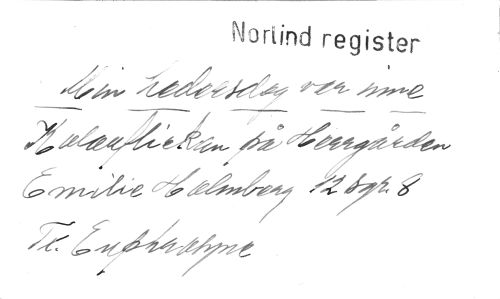 Norlind register
Min hedersdag var inne
Kolaflickan på Herrgården
Emilie Holmberg 12 sgr. 8
Tr. Euphrosyne